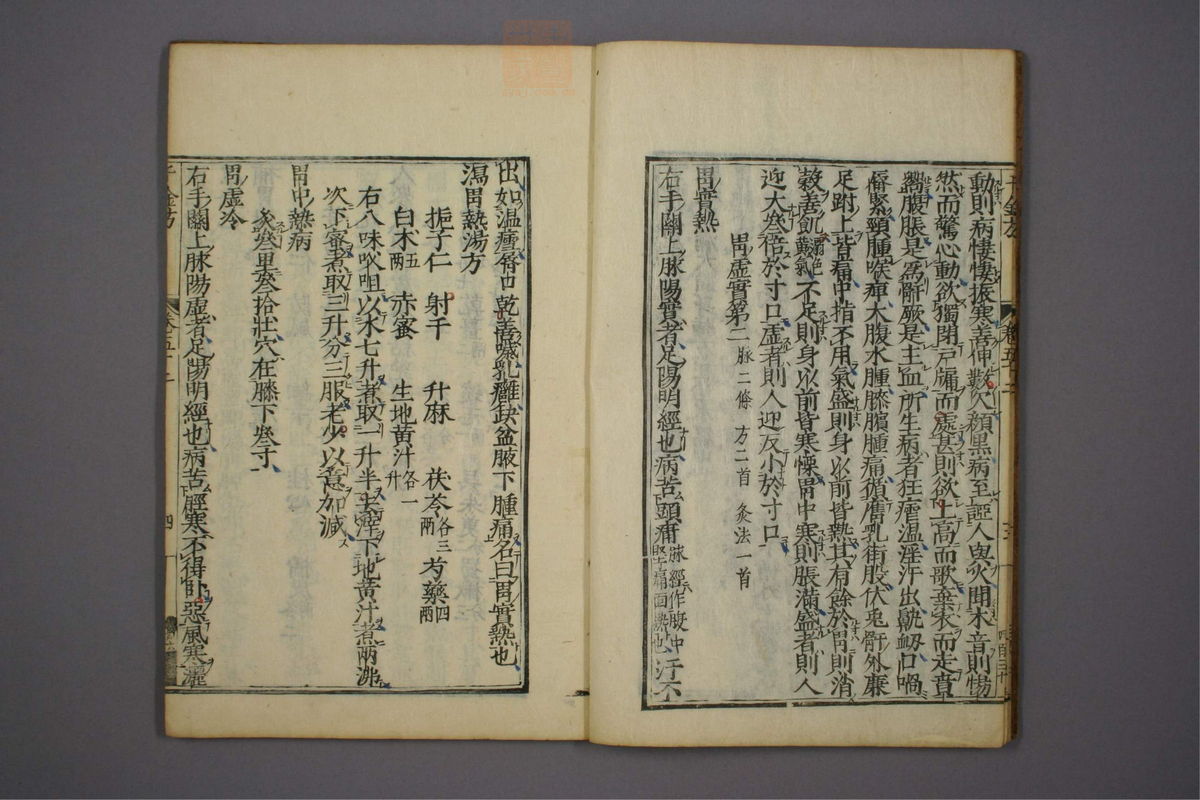 動則病悽悽振寒善伸數欠顔黒病至惡人與火聞木音則惕
然而驚心動欲獨閉戸牖而處甚則欲上高而歌棄衣而走賁
嚮腹脹是爲骭厥是主血所生病者狂瘧温淫汗出鼽衂口喎
脣緊頸腫喉痺大腹水腫膝臏腫痛循膺乳街股伏兎骭外廉
足跗上皆痛中指不用氣盛則身以前皆熱其有餘於胃則消
穀善飢溺色黄氣不足則身以前皆寒慄胃中寒則脹滿盛者則人
迎大叁倍於寸口虚者則人迎反小於寸口
胃虚實第二 脉二條 方二首 灸法一首
胃實熱
右手關上脉陽實者足陽明經也病苦頭痛 脉經作腹中堅痛面熱也 汗不
千金方 卷五十二 三
出如温瘧脣口乾善噦乳癰缺盆腋下腫痛名曰胃實熱也
瀉胃熱湯方
梔子仁 射干 升麻 茯苓各三兩 芍藥四兩
白术五兩 赤蜜 生地黄汁各一升
右八味㕮咀以水七升煮取一升半去滓下地黄汁煮兩沸
次下蜜煮取三升分三服老少以意加減
胃中熱病
灸叁里叁拾壯穴在膝下叁寸
胃虚冷
右手關上脉陽虚者足陽明經也病苦脛寒不得卧惡風寒灑
千金方 卷五十二 四